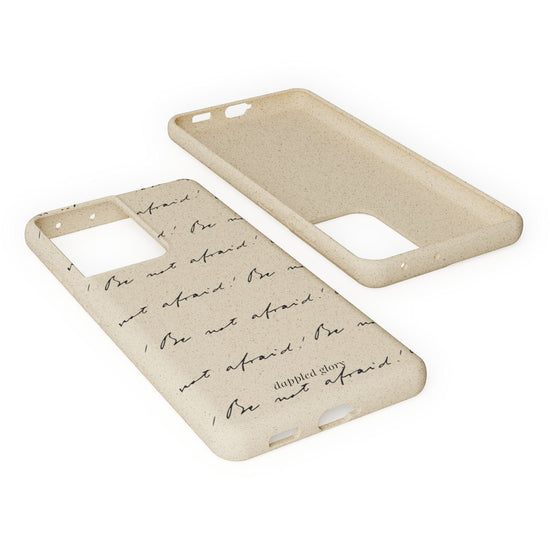 afraid!
d! Be n
! Be not afraid!
not afraid! Be n
! Be not afraid!
not afraid! Be n
dappled glory
! Be not afraid!